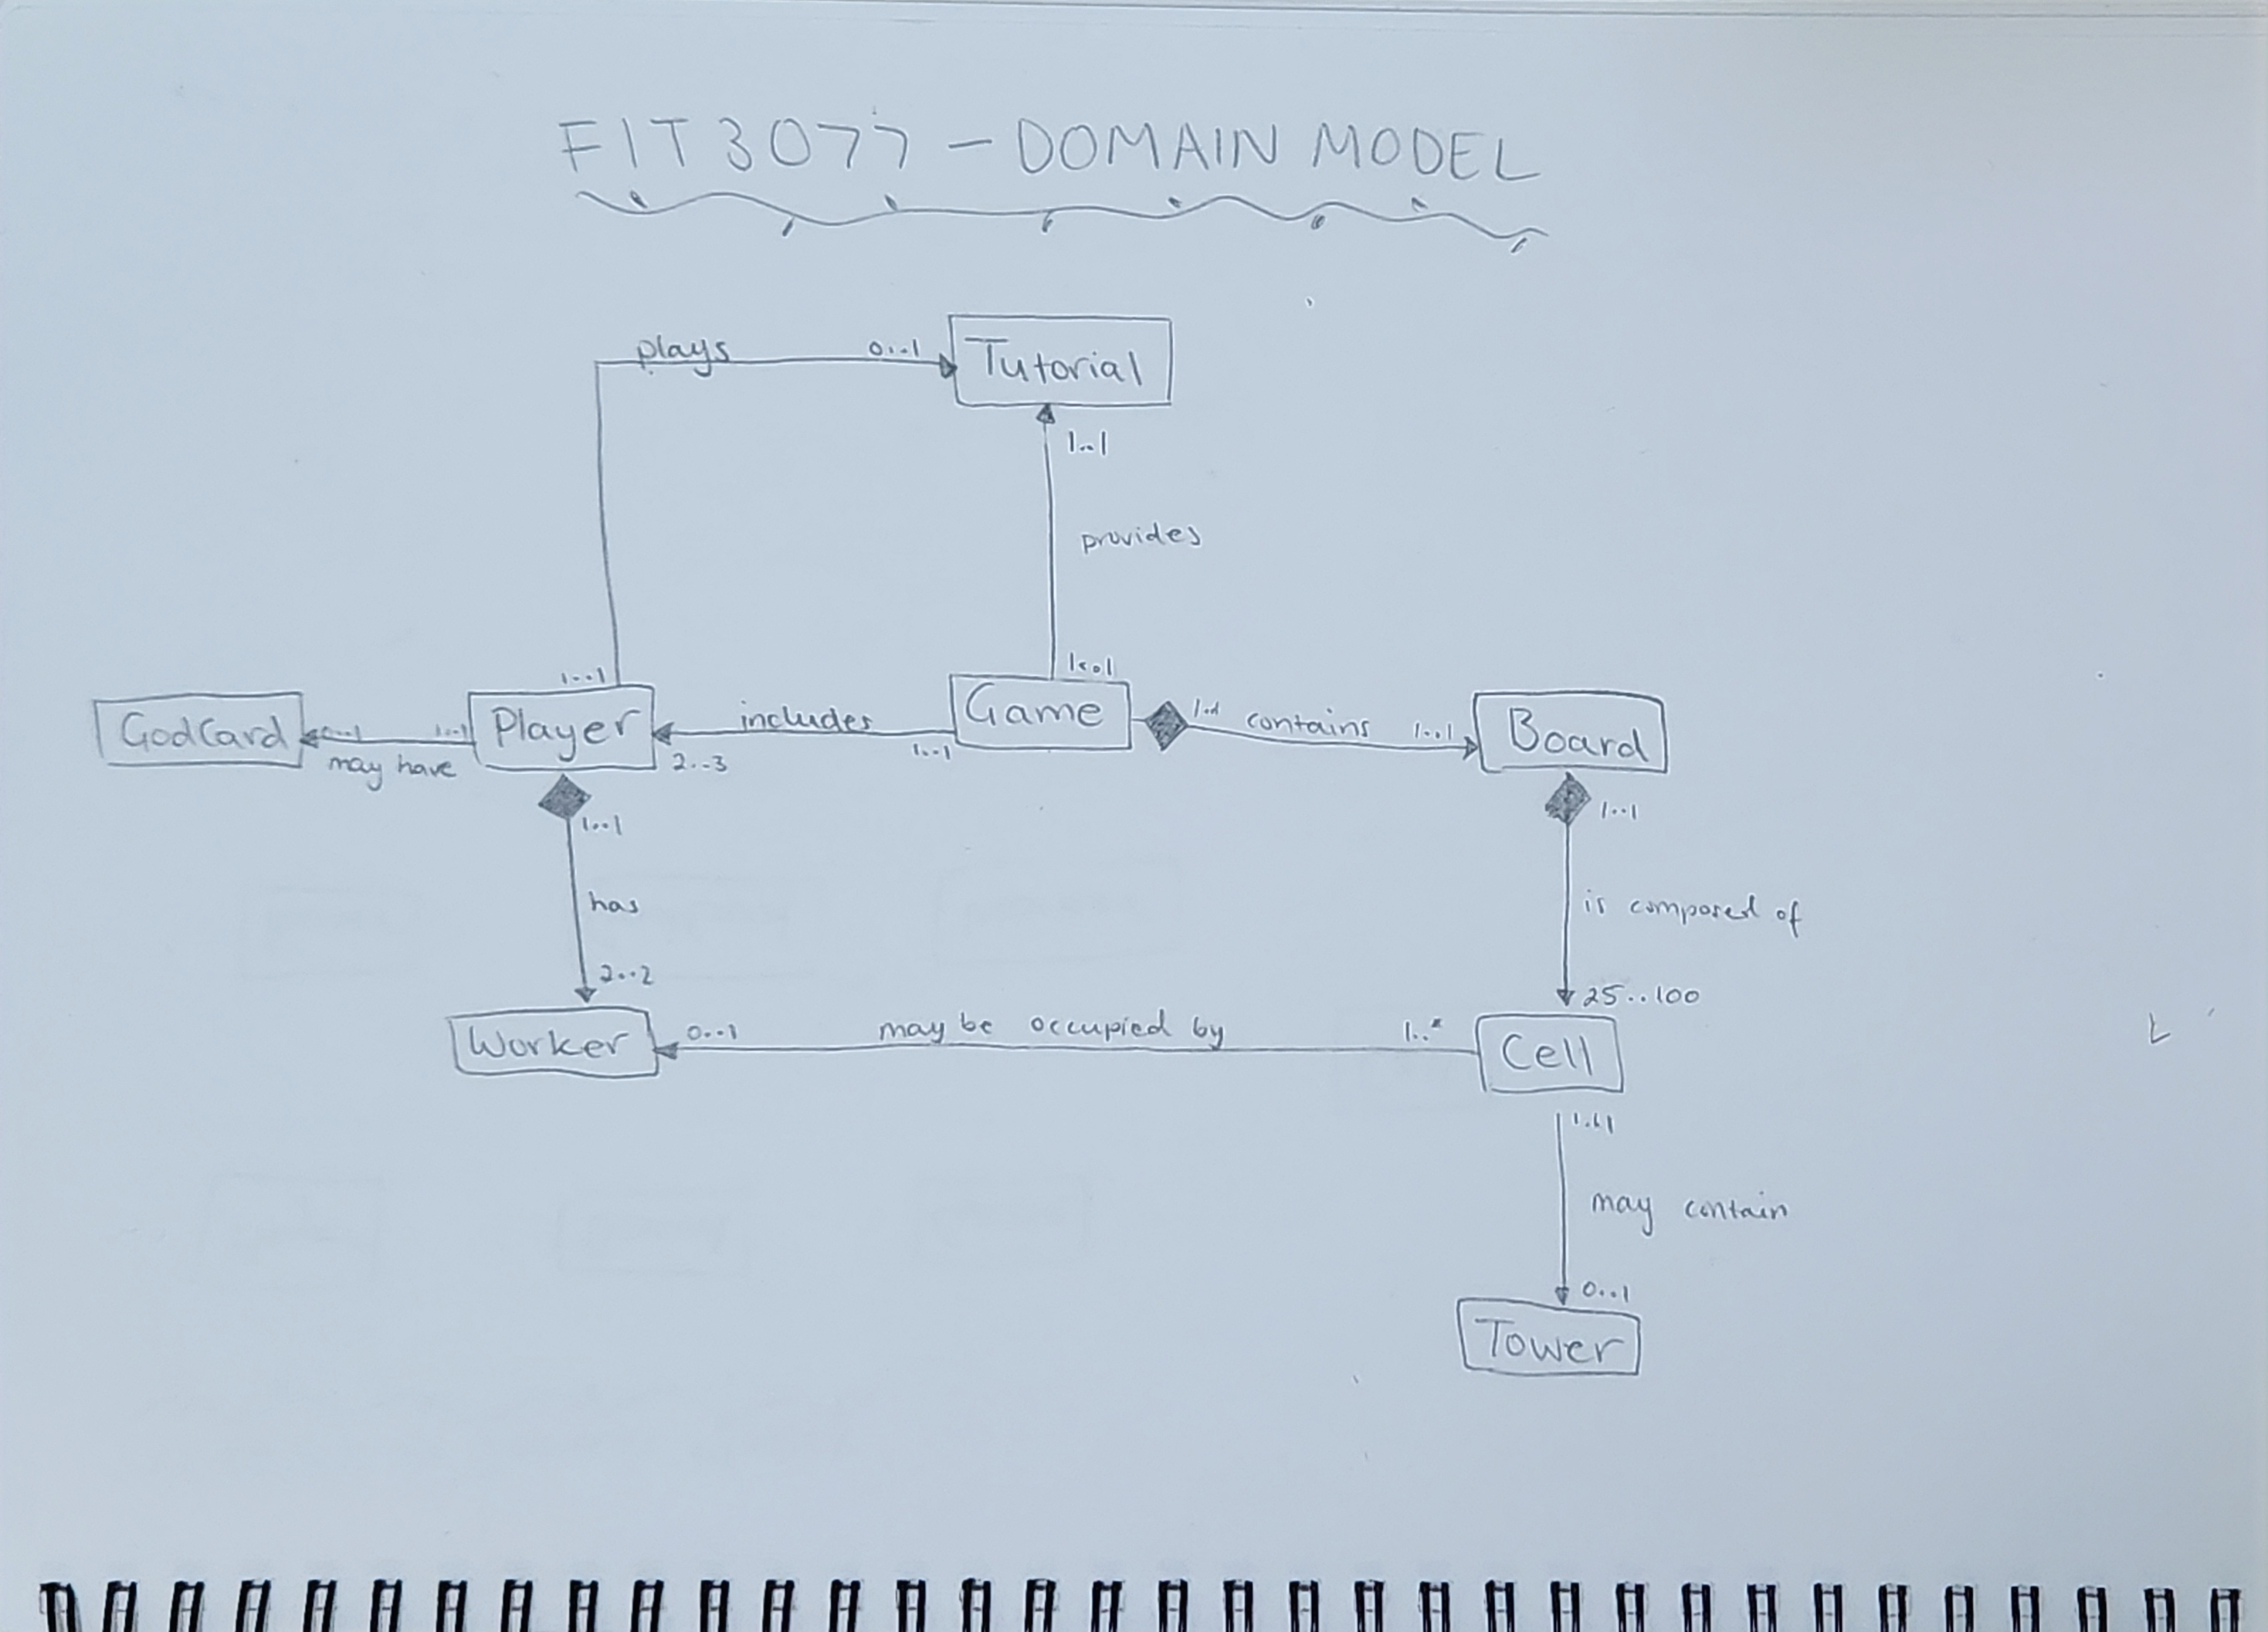 FIT3077 - DOMAIN MODEL
plays 0..1 Tutorial
1..1
provides
1..1 1..1
GodCard 0..1 1..1 Player includes Game 1..1 contains 1..1 Board
may have 2..3 1..1
1..1 1..1
has is composed of
2..2 25..100
Worker 0..1 may be occupied by 1..* Cell
1..1
may contain
0..1
Tower